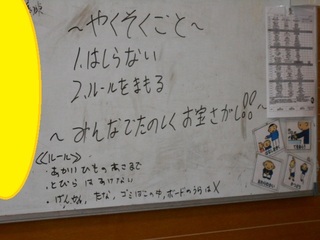 ～やくそくごと～
1.はしらない
2.ルールをまもる
～みんなでたのしくお宝さがし!!～
≪ルール≫
・あかい ひもの あこまで
・とびら は あけない
・げんかん、たな、ゴミばこの中、ボードのうらは×